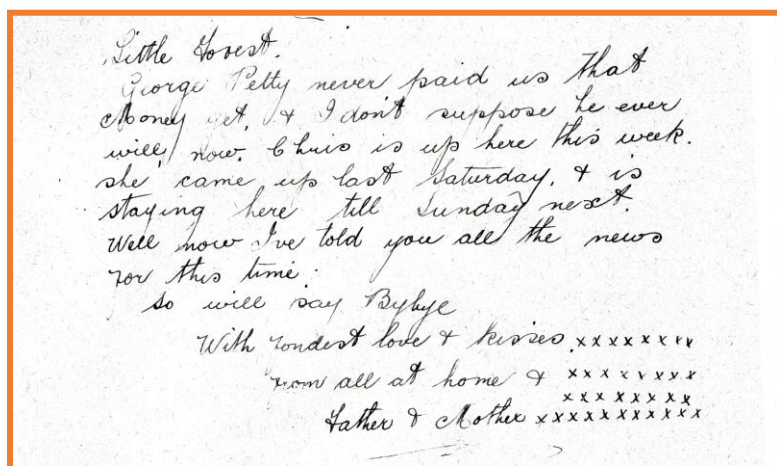 Little Forest.
George Petty never paid us that
Money yet, & I don't suppose he ever
will, now. Chris is up here this week.
she came up last Saturday, & is
staying here till Sunday next.
Well now I've told you all the news
For this time.
So will say Bybye
With Fondest love & kisses. xxxxxxxx
From all at home & xxxxxxxx
xxxxxxxx
Father & Mother xxxxxxxxxxx